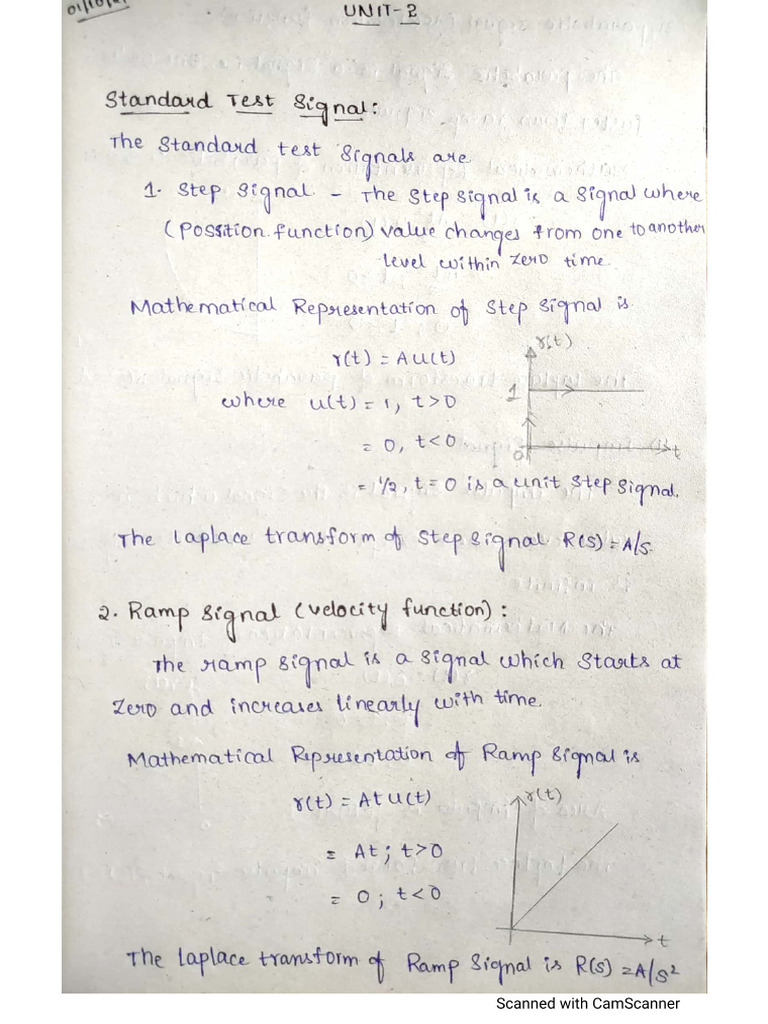 UNIT-2
Standard Test Signal:
The Standard test Signals are
1. Step Signal - The Step Signal is a Signal where
(Possition function) value changes from one to another
level within zero time.
Mathematical Representation of Step Signal is
r(t) = Au(t)
r(t)
where u(t) = 1, t>0
1
= 0, t<0
0
t
= 1/2, t=0 is a unit Step Signal.
The Laplace transform of Step Signal R(S) = A/s.
2. Ramp Signal (velocity function):
The ramp Signal is a Signal which Starts at
zero and increases linearly with time.
Mathematical Representation of Ramp Signal is
r(t) = Atu(t)
r(t)
= At; t>0
= 0; t<0
t
The Laplace transform of Ramp Signal is R(S) = A/S²
Scanned with CamScanner